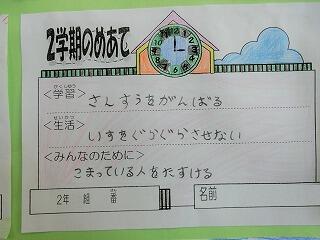 2学期のめあて
<学習>
がくしゅう
さんすうをがんばる
<生活>
せいかつ
いすをぐらぐらさせない
<みんなのために>
こまっている人をたすける
2年 組 番
名前